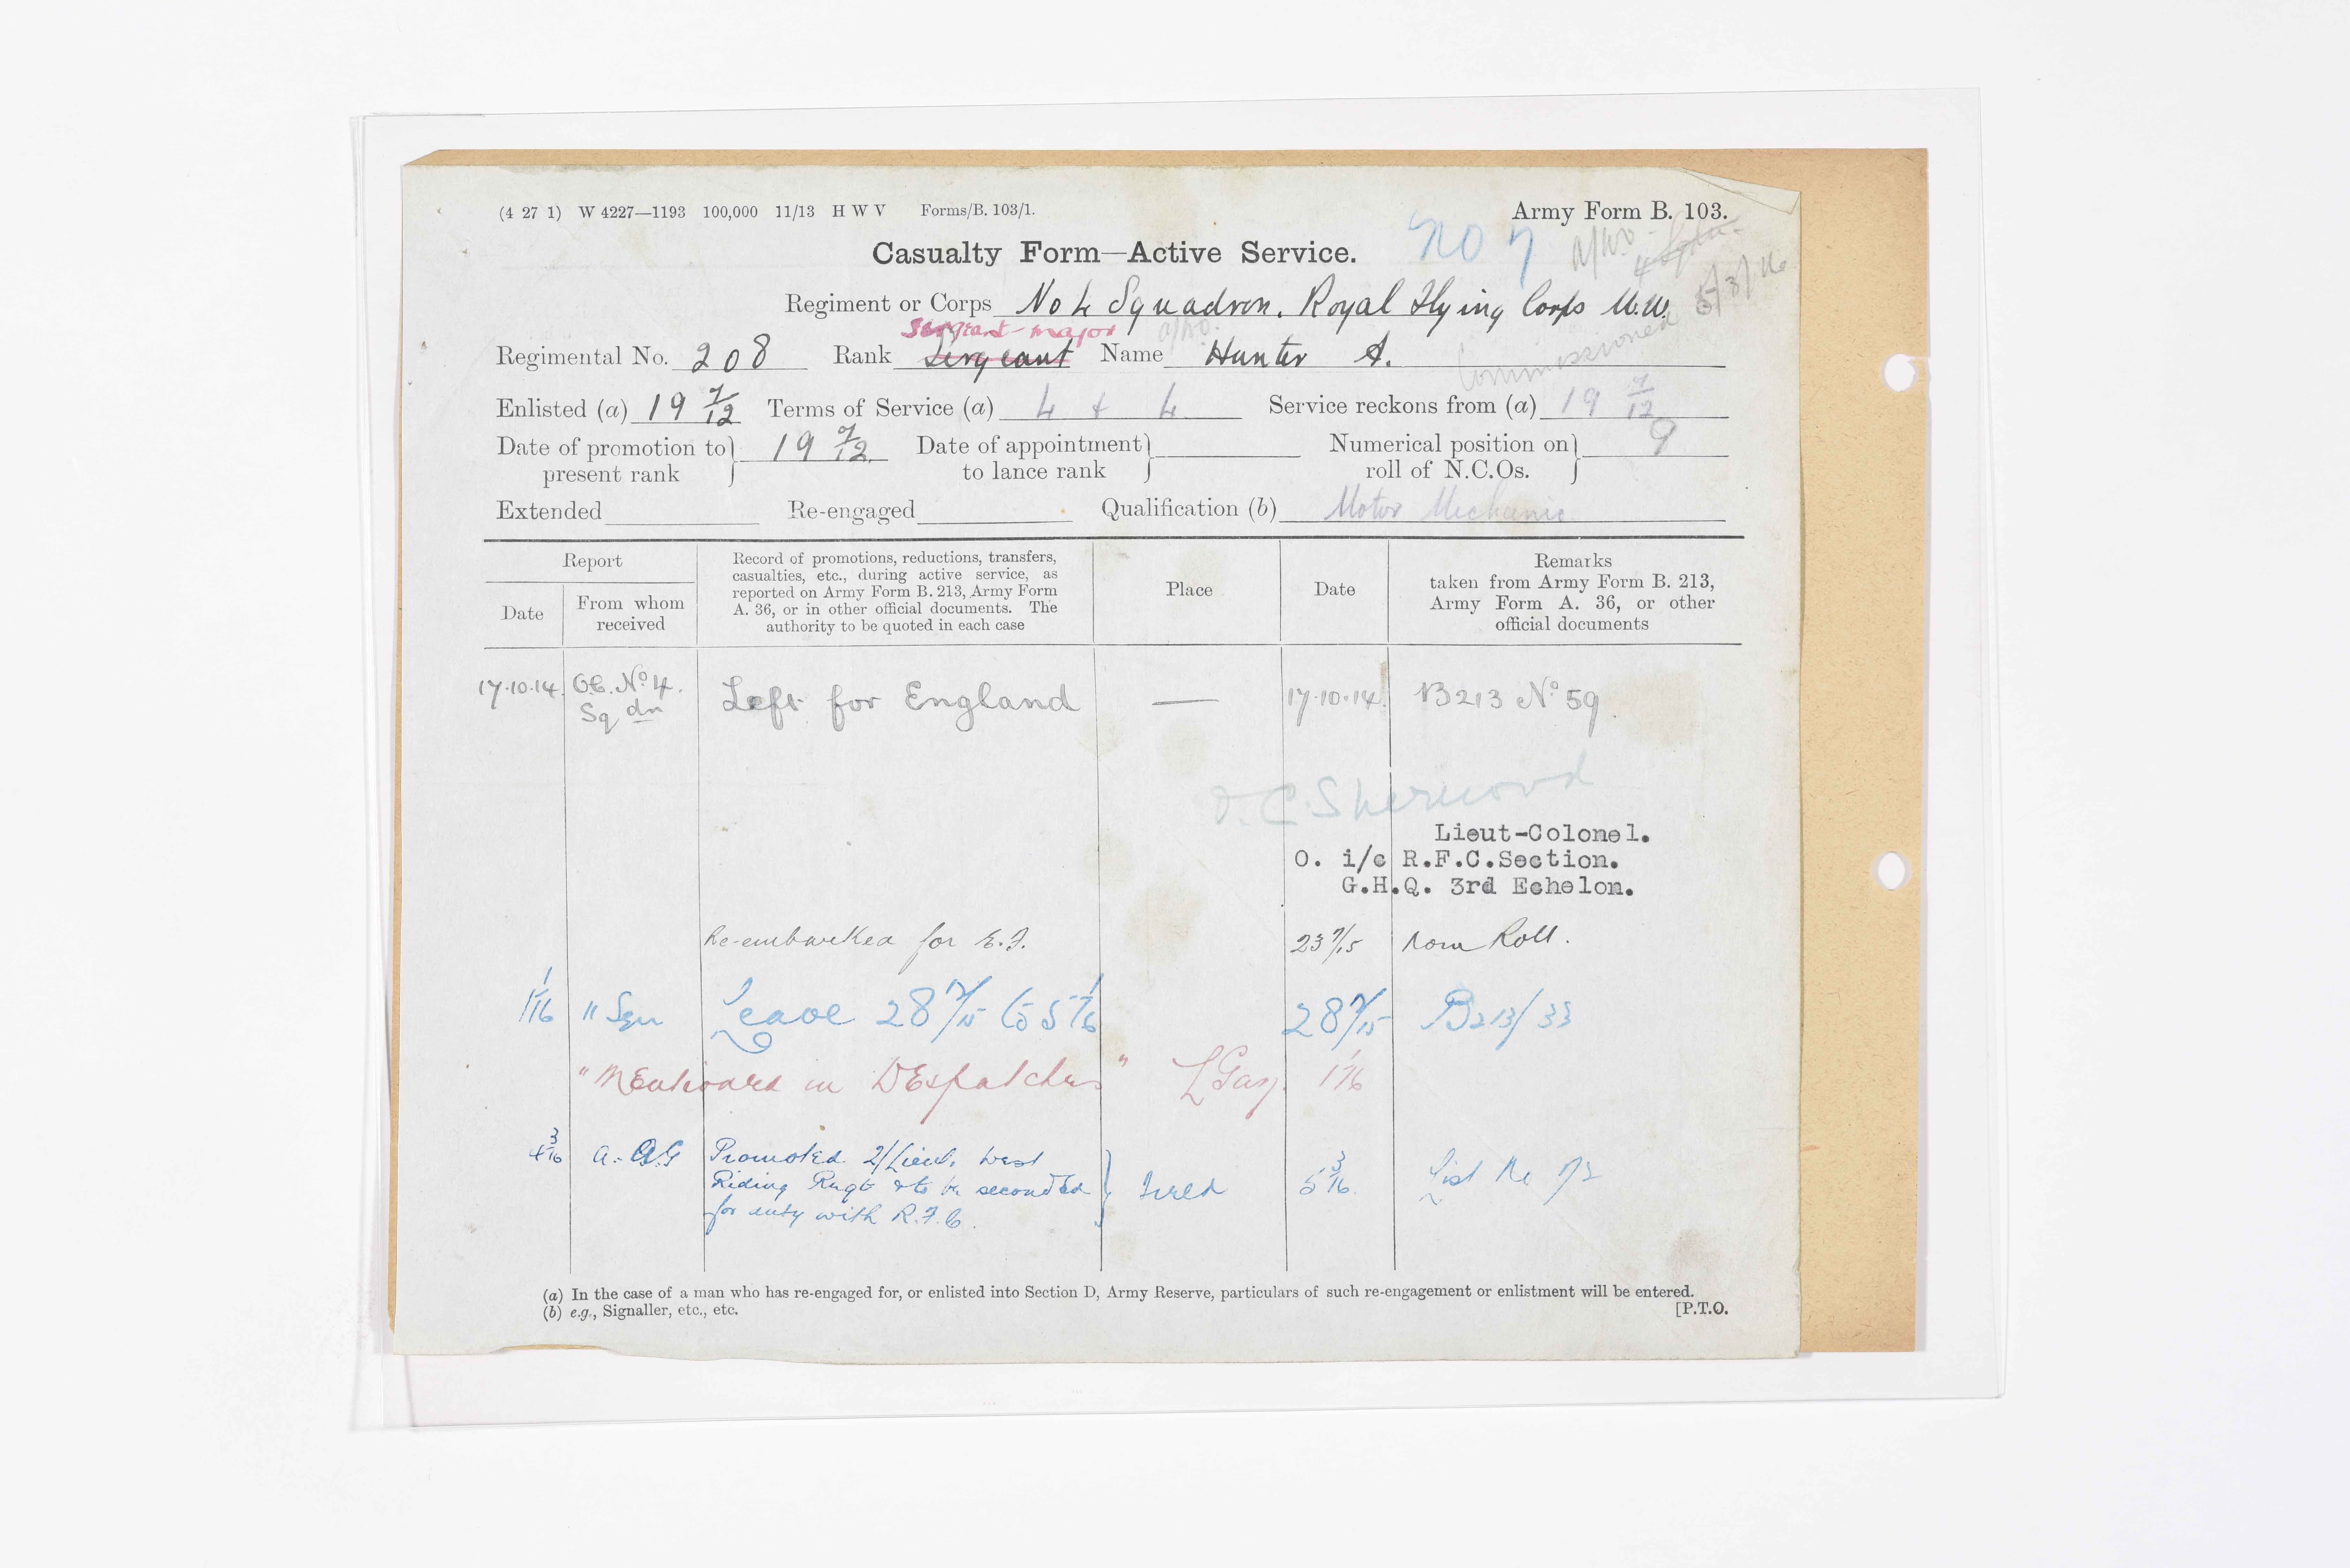 (4 27 1) W 4227—1193 100,000 11/13 H W V Forms/B. 103/1.
Army Form B. 103.
Casualty Form—Active Service.
No 7
Regiment or Corps No 4 Squadron. Royal Flying Corps M.W.
Sergeant-Major
Regimental No. 208 Rank Sergeant Name Hunter A.
Commissioned 5/3/16
Enlisted (a) 19 7/12 Terms of Service (a) 4 + 4 Service reckons from (a) 19 7/12
Date of promotion to present rank 19 7/12 Date of appointment to lance rank Numerical position on roll of N.C.Os. 9
Extended Re-engaged Qualification (b) Motor Mechanic
Report
Date
From whom received
Record of promotions, reductions, transfers,
casualties, etc., during active service, as
reported on Army Form B. 213, Army Form
A. 36, or in other official documents. The
authority to be quoted in each case
Place
Date
Remarks
taken from Army Form B. 213,
Army Form A. 36, or other
official documents
17.10.14. O.C. No 4. Sqdn Left for England — 17.10.14. B213 No 59.
C Sherwood
Lieut-Colonel.
O. i/c R.F.C.Section.
G.H.Q. 3rd Echelon.
Re-embarked for E.F. 23 7/15 Nom Roll.
1 1/16 11 Sqn Leave 28 12/15 to 5 1/16 28 12/15 B213/33
"Mentioned in Despatches" L Gaz. 1 1/16
4 3/16 A.A.G Promoted 2/Lieut. West
Riding Regt & to be seconded
for duty with R.F.C.
Field 5 3/16 List No 72
(a) In the case of a man who has re-engaged for, or enlisted into Section D, Army Reserve, particulars of such re-engagement or enlistment will be entered.
(b) e.g., Signaller, etc., etc.
[P.T.O.